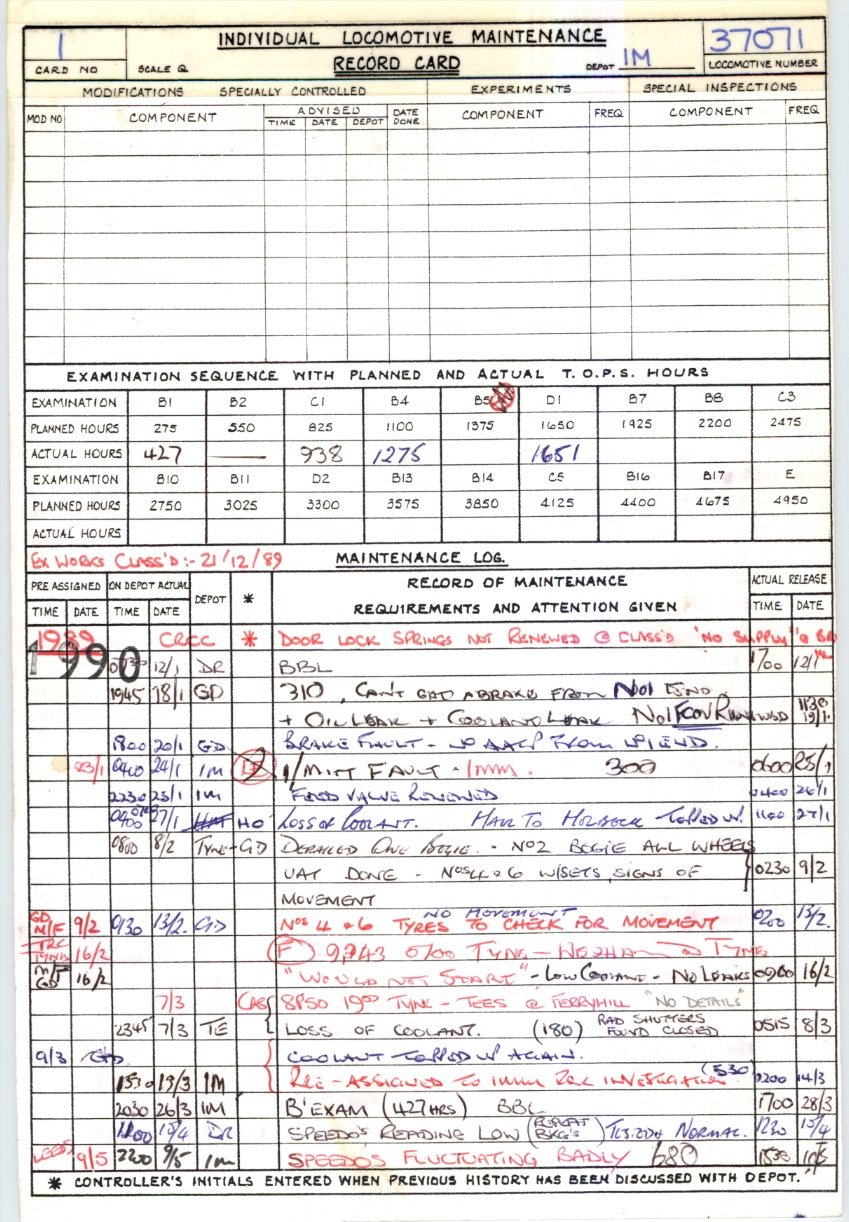 1 INDIVIDUAL LOCOMOTIVE MAINTENANCE 37071
CARD NO SCALE Q RECORD CARD DEPOT IM LOCOMOTIVE NUMBER
MODIFICATIONS SPECIALLY CONTROLLED EXPERIMENTS SPECIAL INSPECTIONS
MOD NO COMPONENT ADVISED DATE DONE COMPONENT FREQ COMPONENT FREQ
TIME DATE DEPOT
EXAMINATION SEQUENCE WITH PLANNED AND ACTUAL T.O.P.S. HOURS
EXAMINATION B1 B2 C1 B4 B5 D1 B7 B8 C3
PLANNED HOURS 275 550 825 1100 1375 1650 1925 2200 2475
ACTUAL HOURS 427 — 938 1275 1651
EXAMINATION B10 B11 D2 B13 B14 C5 B16 B17 E
PLANNED HOURS 2750 3025 3300 3575 3850 4125 4400 4675 4950
ACTUAL HOURS
EX WORKS CLASS'D :- 21/12/89 MAINTENANCE LOG.
PRE ASSIGNED ON DEPOT ACTUAL DEPOT * RECORD OF MAINTENANCE ACTUAL RELEASE
TIME DATE TIME DATE REQUIREMENTS AND ATTENTION GIVEN TIME DATE
1989 CRCC * DOOR LOCK SPRINGS NOT RENEWED @ CLASS'D 'NO SUPPLY' @ BR
1990 12/1 DR BBL 1700 12/1
1945 18/1 GD 310, CAN'T GET A BRAKE FROM No1 END
+ OIL LEAK + COOLANT LEAK No1 RENEWED 1130 19/1
1800 20/1 GD BRAKE FAULT - NO FROM No1 END.
23/1 0400 24/1 IM FAULT - IMM. 300 0600 25/1
2230 25/1 IM FEED VALVE RENEWED 0400 26/1
0400 27/1 HO LOSS OF COOLANT. HAUL TO HOLBECK - TOPPED UP. 1100 27/1
0800 8/2 TYNE - GD DERAILED ONE BOGIE. - No2 BOGIE ALL WHEELS
UAT DONE - Nos 4 & 6 W/SETS, SIGNS OF 0230 9/2
MOVEMENT
GD M/F 9/2 0130 13/2. GD Nos 4 & 6 TYRES TO CHECK FOR MOVEMENT NO MOVEMENT 0200 13/2.
TRC TYNE 16/2 F 9243 0700 TYNE - HEXHAM @ TYNE
M/F GD 16/2 "WOULD NOT START" - LOW COOLANT - NO LEAKS 0900 16/2
7/3 CAS 8P50 1900 TYNE - TEES @ FERRYHILL "NO DETAILS"
2345 7/3 TE LOSS OF COOLANT. (180) RAD SHUTTERS FOUND CLOSED 0515 8/3
9/3 GD COOLANT TOPPED UP AGAIN.
1530 13/3 IM RE-ASSIGNED TO IMM FOR INVESTIGATION (530) 0200 14/3
2030 26/3 IM B'EXAM (427HRS) BBL 1700 28/3
1100 15/4 DR SPEEDO'S READING LOW (REPEAT BKG'S) TESTED NORMAL. 1230 15/4
LEEDS 9/5 2200 9/5 IM SPEEDOS FLUCTUATING BADLY 680 1530 10/5
* CONTROLLER'S INITIALS ENTERED WHEN PREVIOUS HISTORY HAS BEEN DISCUSSED WITH DEPOT.